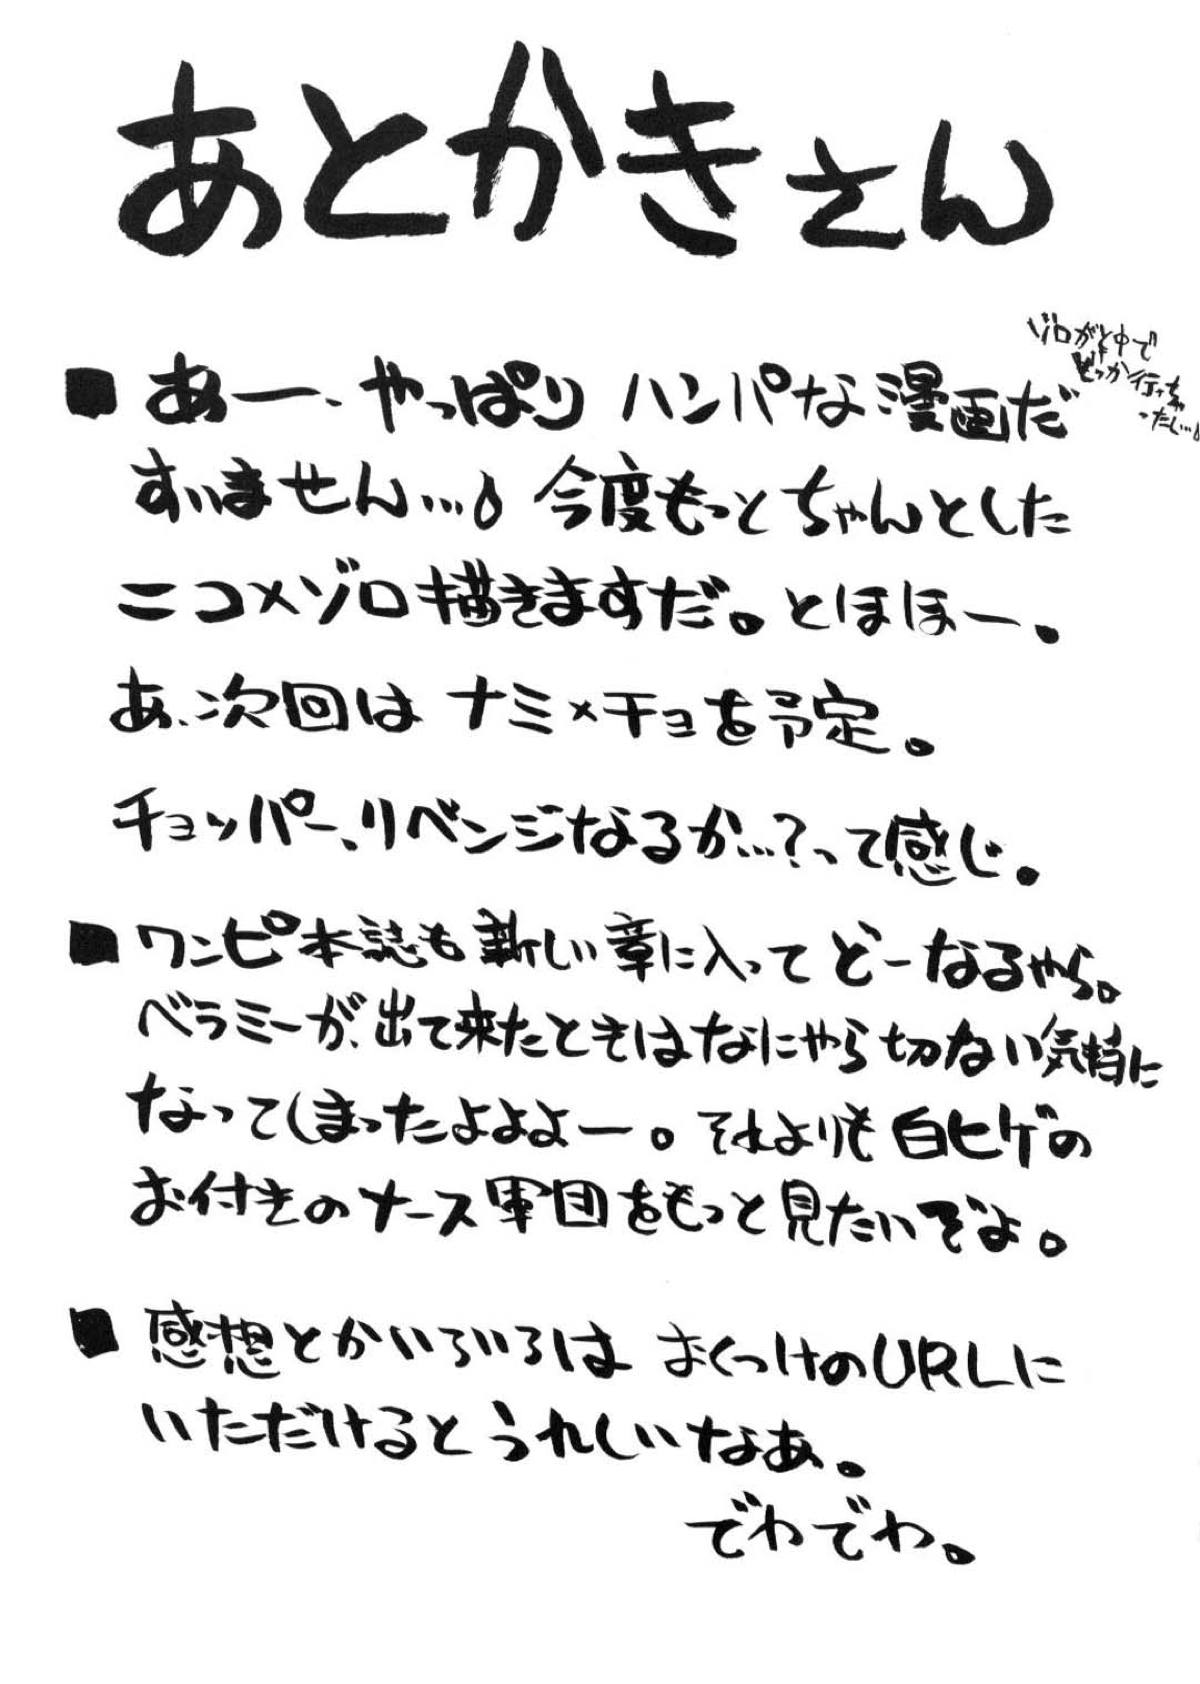 あとかきさん
■ あー、やっぱり ハンパな漫画だ
ゾロがと中で
どっか行っちゃ
ったし…
すいません… 今度もっとちゃんとした
ニコ×ゾロ描きますだ。とほほー。
あ、次回は ナミ×チョを予定。
チョッパー、リベンジなるか…?って感じ。
■ ワンピ本誌も新しい章に入ってどーなるやら。
ベラミーが、出て来たときはなにやら切ない気持に
なってしまったよよよー。それよりも白ヒゲの
お付きのナース軍団をもっと見たいぞよ。
■ 感想とかいろいろは おくっけのURLに
いただけるとうれしいなあ。
でわでわ。